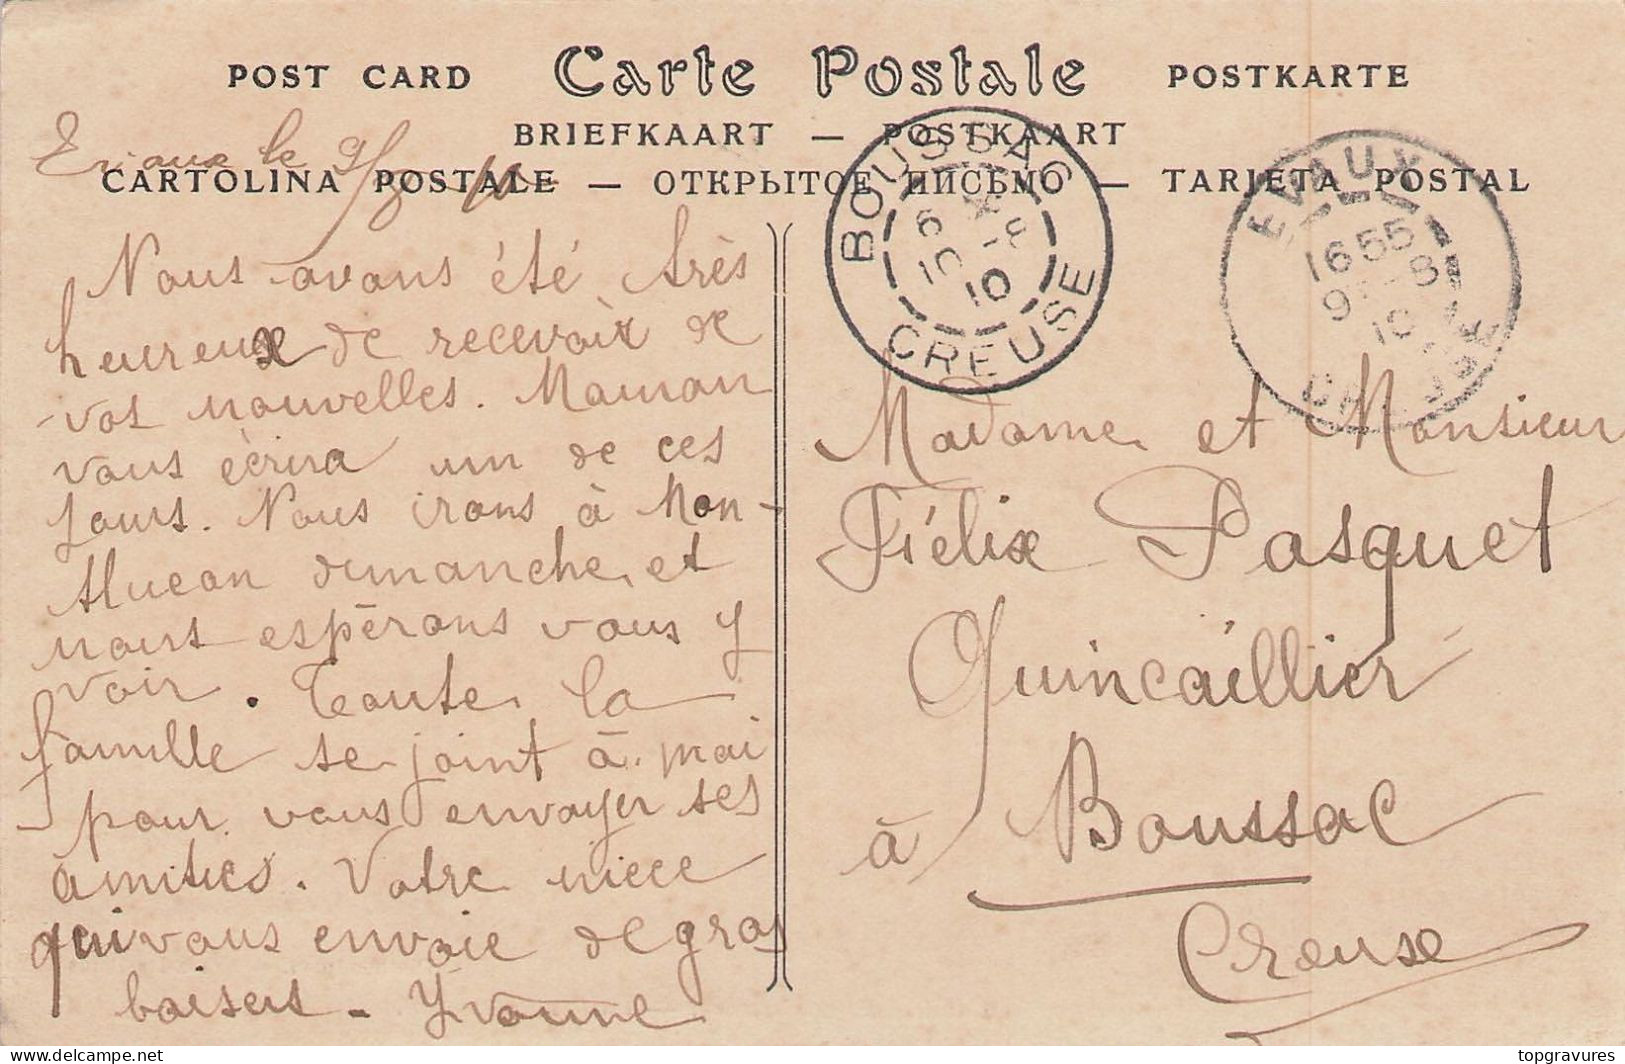 POST CARD Carte Postale POSTKARTE
BRIEFKAART — POSTKAART
CARTOLINA POSTALE — ОТКРЫТОЕ ПИСЬМО — TARJETA POSTAL
Evaux le 9/8
BOUSSAC
6
10 -8
10
CREUSE
EVAUX
16 55
9 -8
10
CREUSE
Nous avons été très
heureux de recevoir de
vos nouvelles. Maman
vous écrira un de ces
jours. Nous irons à Mon-
tlucon dimanche et
nous espérons vous y
voir. Toute la
famille se joint à moi
pour vous envoyer ses
amitiés. Votre niece
qui vous envoie de gros
baisers - Yvonne
Madame et Monsieur
Félix Pasquet
Quincaillier
à Boussac
Creuse
delcampe.net
topgravures